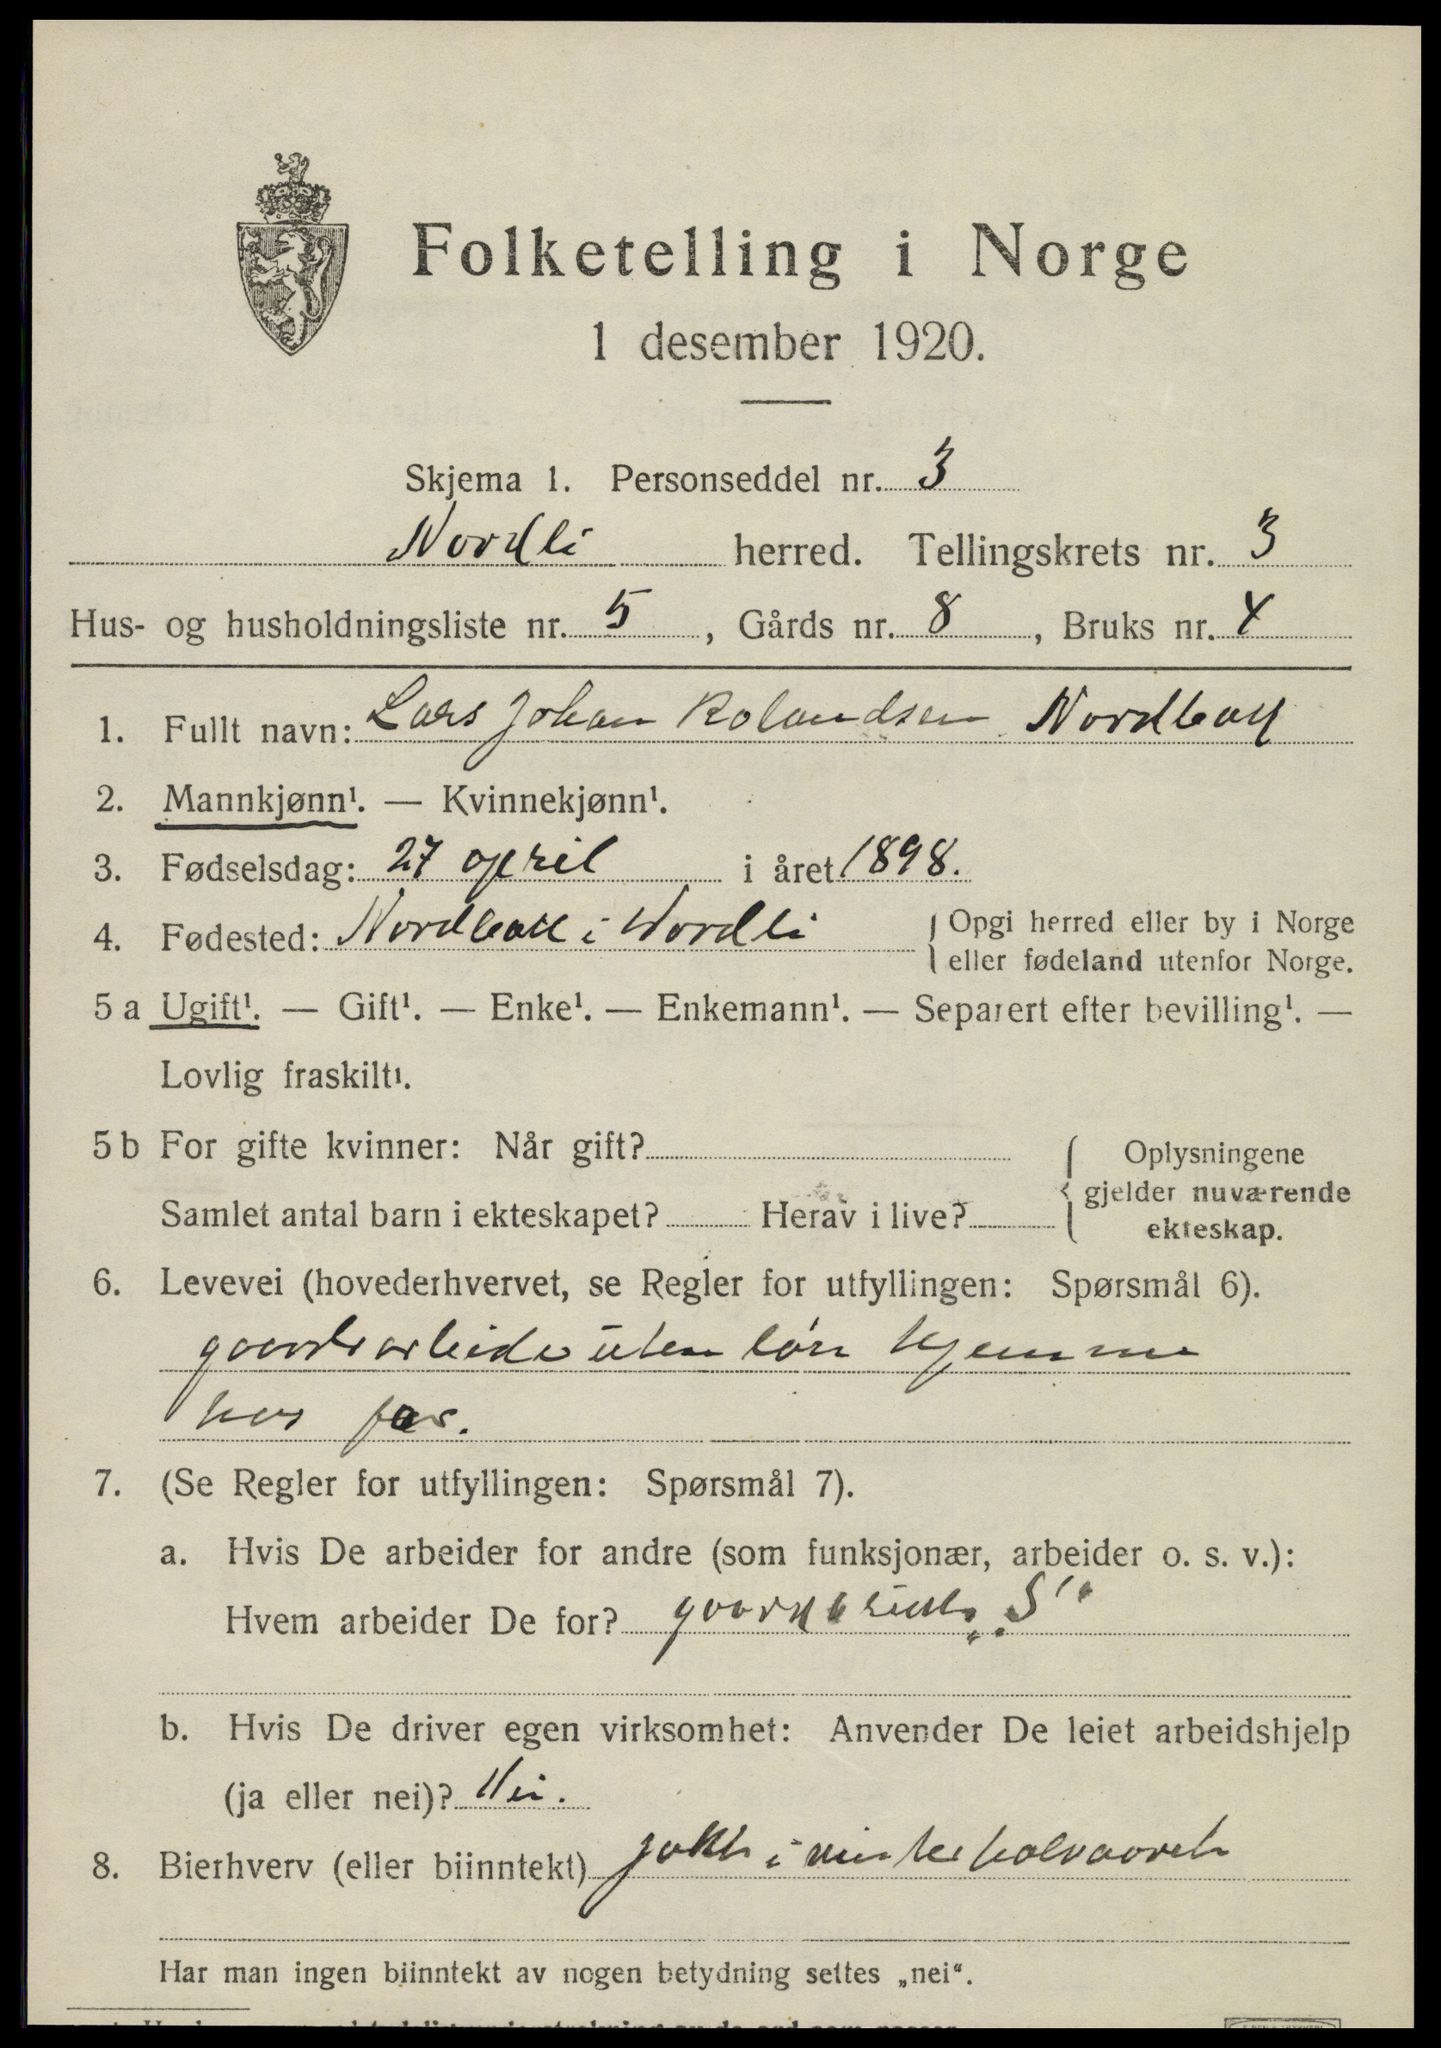 Folketelling i Norge
1 desember 1920.
Skjema 1. Personseddel nr. 3
Nordli herred. Tellingskrets nr. 3
Hus- og husholdningsliste nr. 5, Gårds nr. 8, Bruks nr. 4
1. Fullt navn: Lars Johan Rolandsen Nordbak
2. Mannkjønn¹. — Kvinnekjønn¹.
3. Fødselsdag: 27 april i året 1898.
4. Fødested: Nordbak i Nordli { Opgi herred eller by i Norge
eller fødeland utenfor Norge.
5 a Ugift¹. — Gift¹. — Enke¹. — Enkemann¹. — Separert efter bevilling¹. —
Lovlig fraskilt¹.
5 b For gifte kvinner: Når gift? { Oplysningene
gjelder nuværende
Samlet antal barn i ekteskapet? Herav i live?
ekteskap.
6. Levevei (hovederhvervet, se Regler for utfyllingen: Spørsmål 6).
gaardsarbeide uten løn hjemme
hos far.
7. (Se Regler for utfyllingen: Spørsmål 7).
a. Hvis De arbeider for andre (som funksjonær, arbeider o. s. v.):
Hvem arbeider De for?
b. Hvis De driver egen virksomhet: Anvender De leiet arbeidshjelp
(ja eller nei)? Nei.
8. Bierhverv (eller biinntekt) jakt i vinterhalvaaret
Har man ingen biinntekt av nogen betydning settes „nei“.